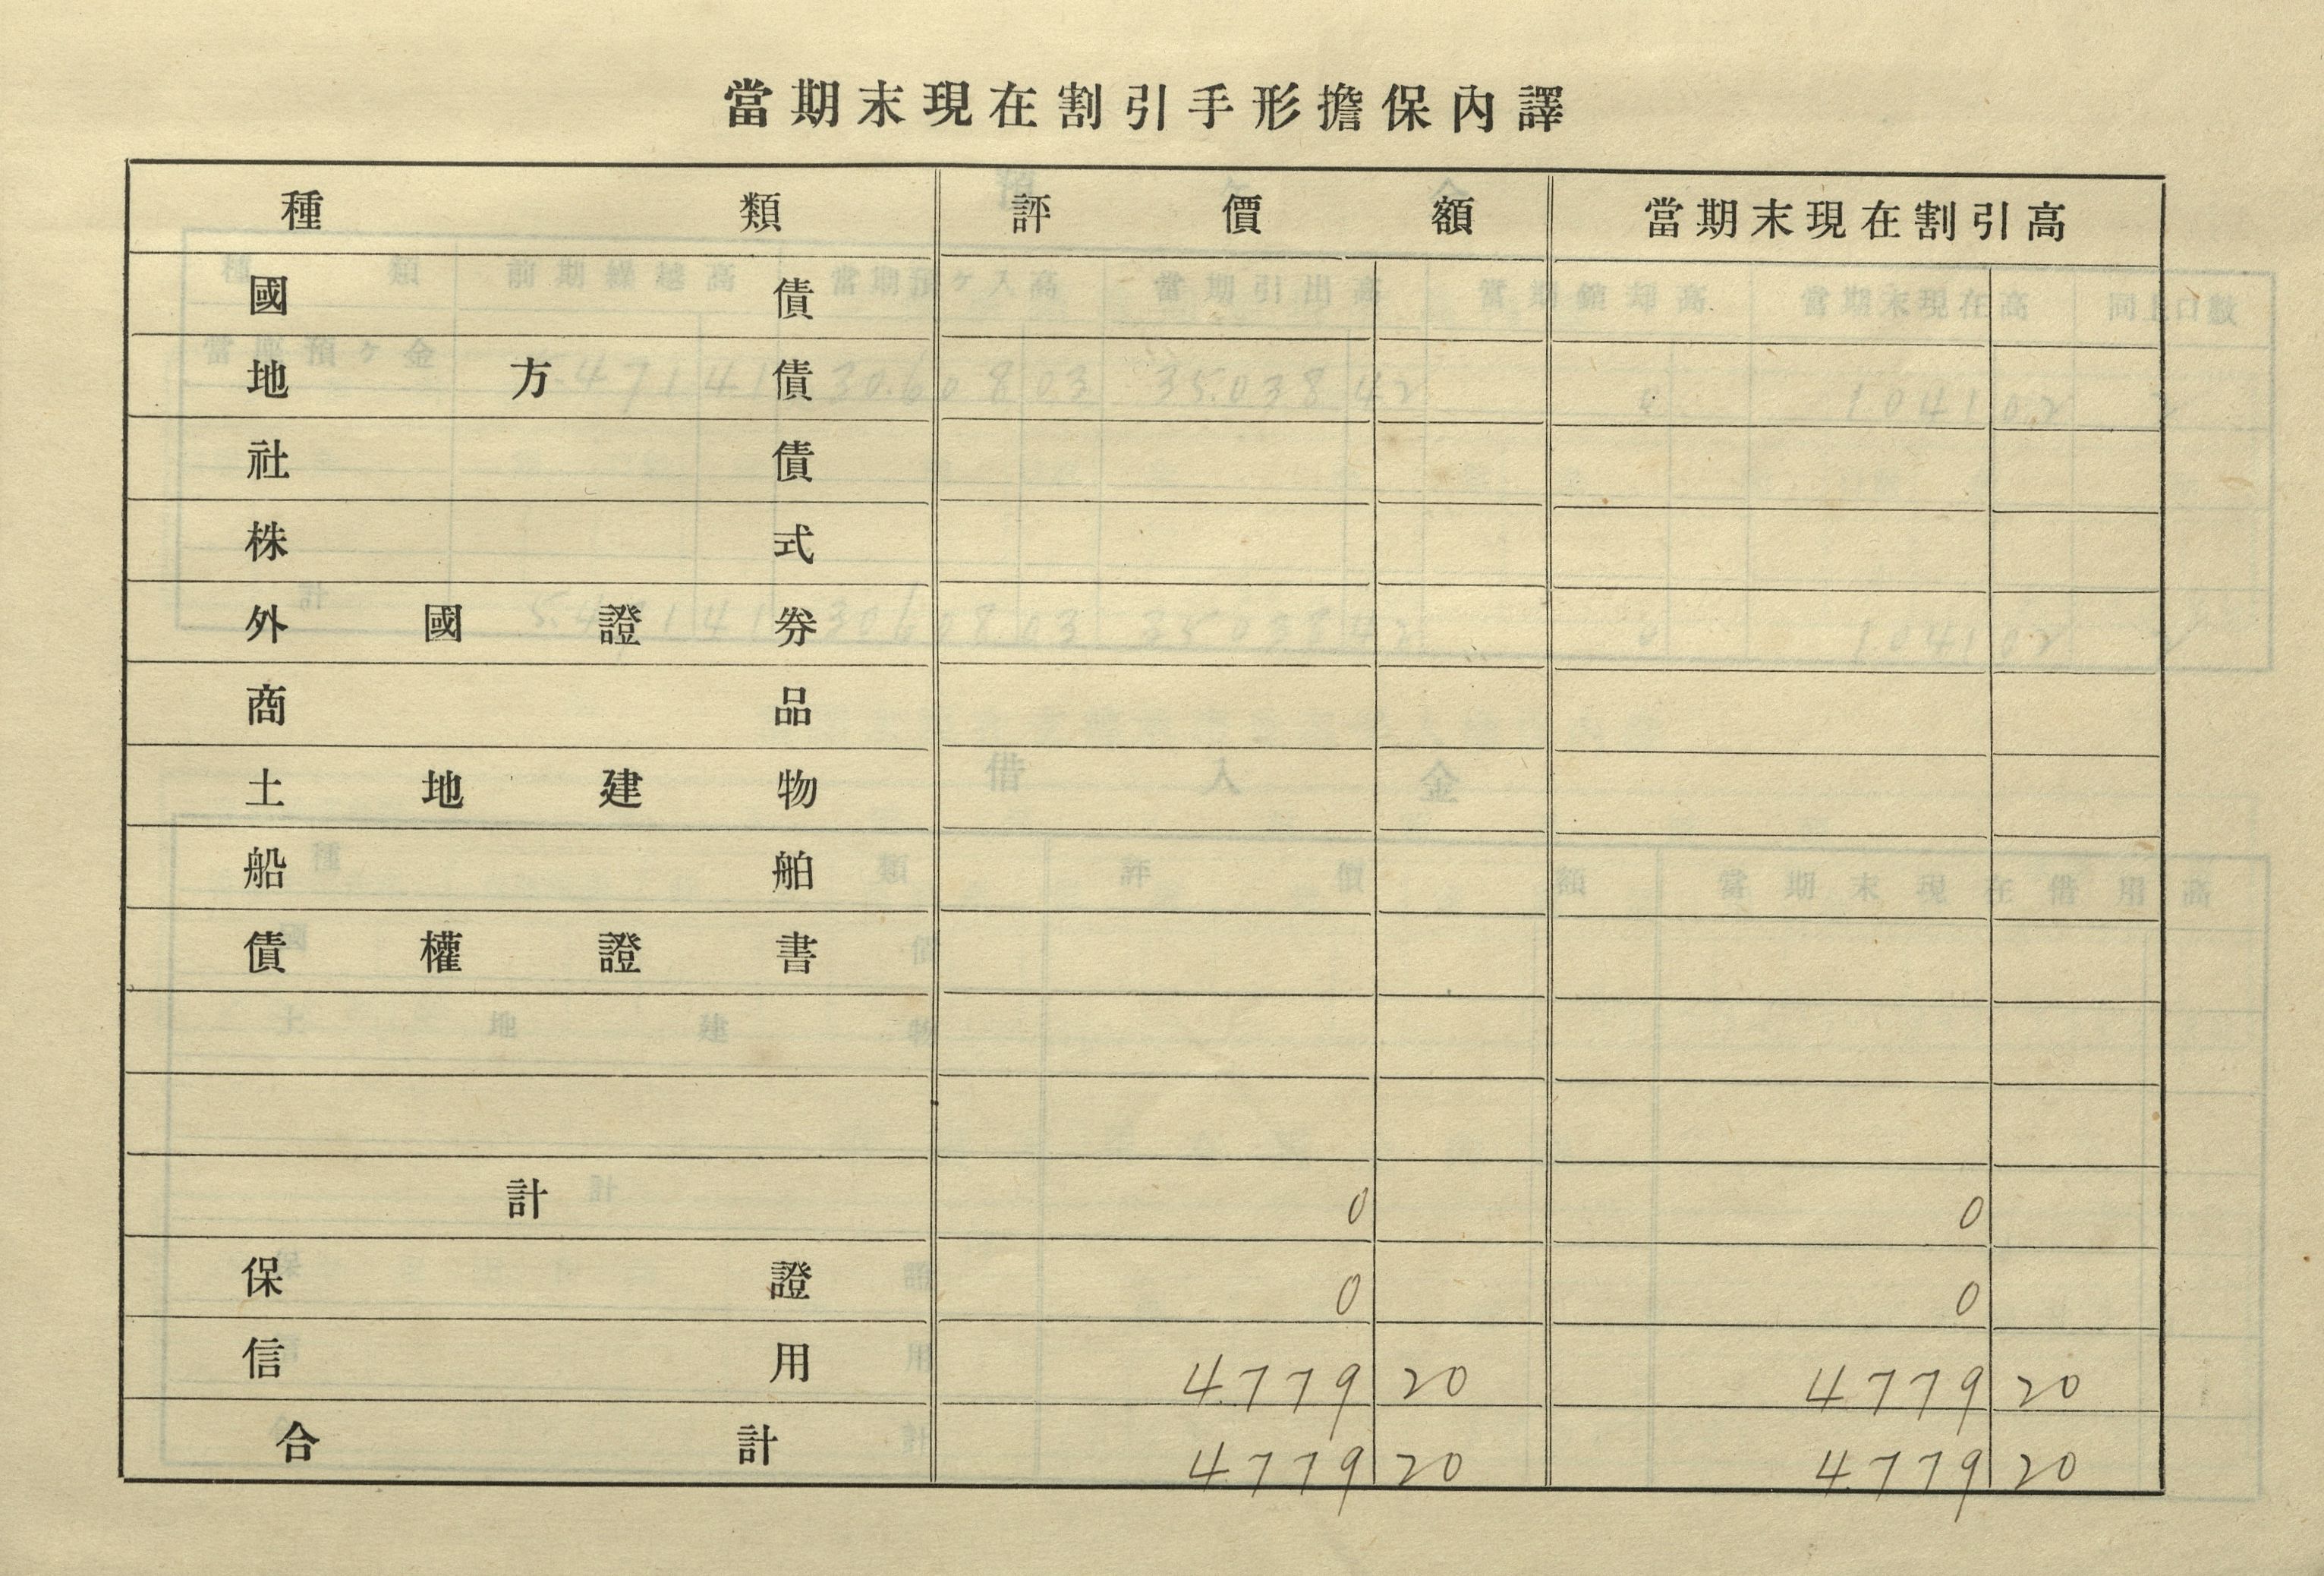 當期末現在割引手形擔保內譯
種類 評價額 當期末現在割引高
國債
地方債
社債
株式
外國證券
商品
土地建物
船舶
債權證書
計 0 0
保證 0 0
信用 4.779 20 4.779 20
合計 4.779 20 4.779 20